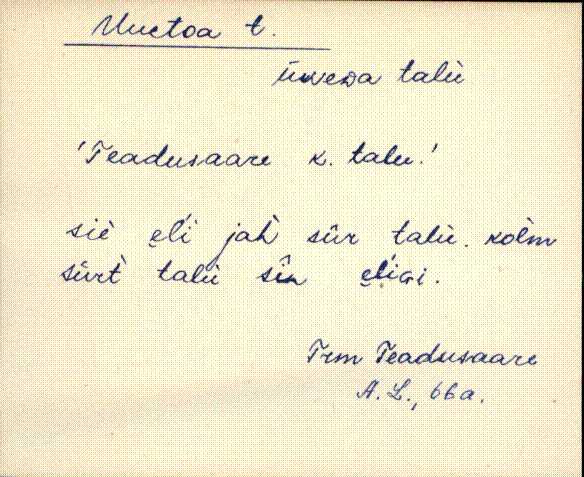 Uuetoa t.
ūweᴅa talū
'Teadusaare k. talu.'
siè ęĺi jah̀ sūr talū. kòlm
sūrt̀ talū sîn ęĺiɢi.
Trm Teadusaare
A. L., 66 a.